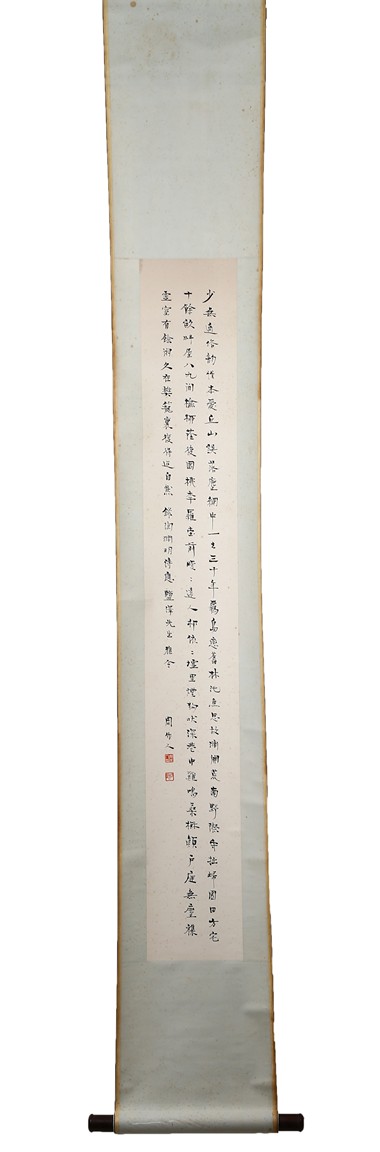 少無適俗韵性本愛丘山誤落塵網中一去三十年羈鳥戀舊林池魚思故淵開荒南野際守拙歸園田方宅
十餘畝草屋八九間榆柳蔭後園桃李羅堂前曖：遠人邨依：墟里煙狗吠深巷中雞鳴桑樹顛戶庭無塵襍
虛室有餘閒久在樊籠裏復得返自然 錄陶淵明詩應 先生雅令
周作人